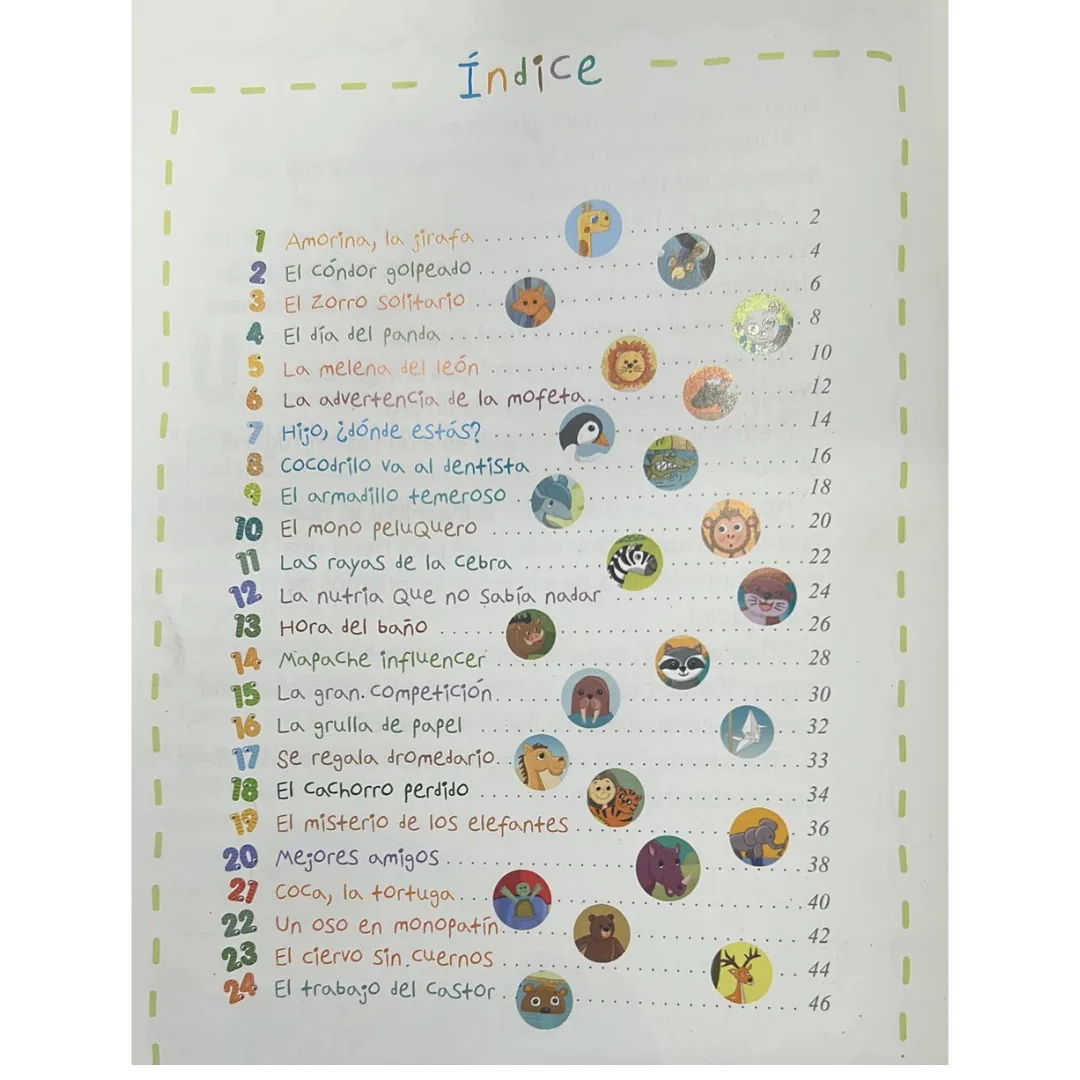 Índice
1 Amorina, la jirafa 2
2 El cóndor golpeado 4
3 El zorro solitario 6
4 El día del panda 8
5 La melena del león 10
6 La advertencia de la mofeta 12
7 Hijo, ¿dónde estás? 14
8 Cocodrilo va al dentista 16
9 El armadillo temeroso 18
10 El mono peluquero 20
11 Las rayas de la cebra 22
12 La nutria que no sabía nadar 24
13 Hora del baño 26
14 Mapache influencer 28
15 La gran competición 30
16 La grulla de papel 32
17 Se regala dromedario 33
18 El cachorro perdido 34
19 El misterio de los elefantes 36
20 Mejores amigos 38
21 Coca, la tortuga 40
22 Un oso en monopatín 42
23 El ciervo sin cuernos 44
24 El trabajo del castor 46